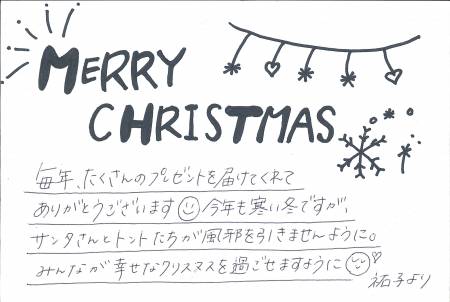 MERRY
CHRISTMAS
毎年、たくさんのプレゼントを届けてくれて
ありがとうございます 今年も寒い冬ですが、
サンタさんとトントたちが風邪を引きませんように。
みんなが幸せなクリスマスを過ごせますように
祐子より